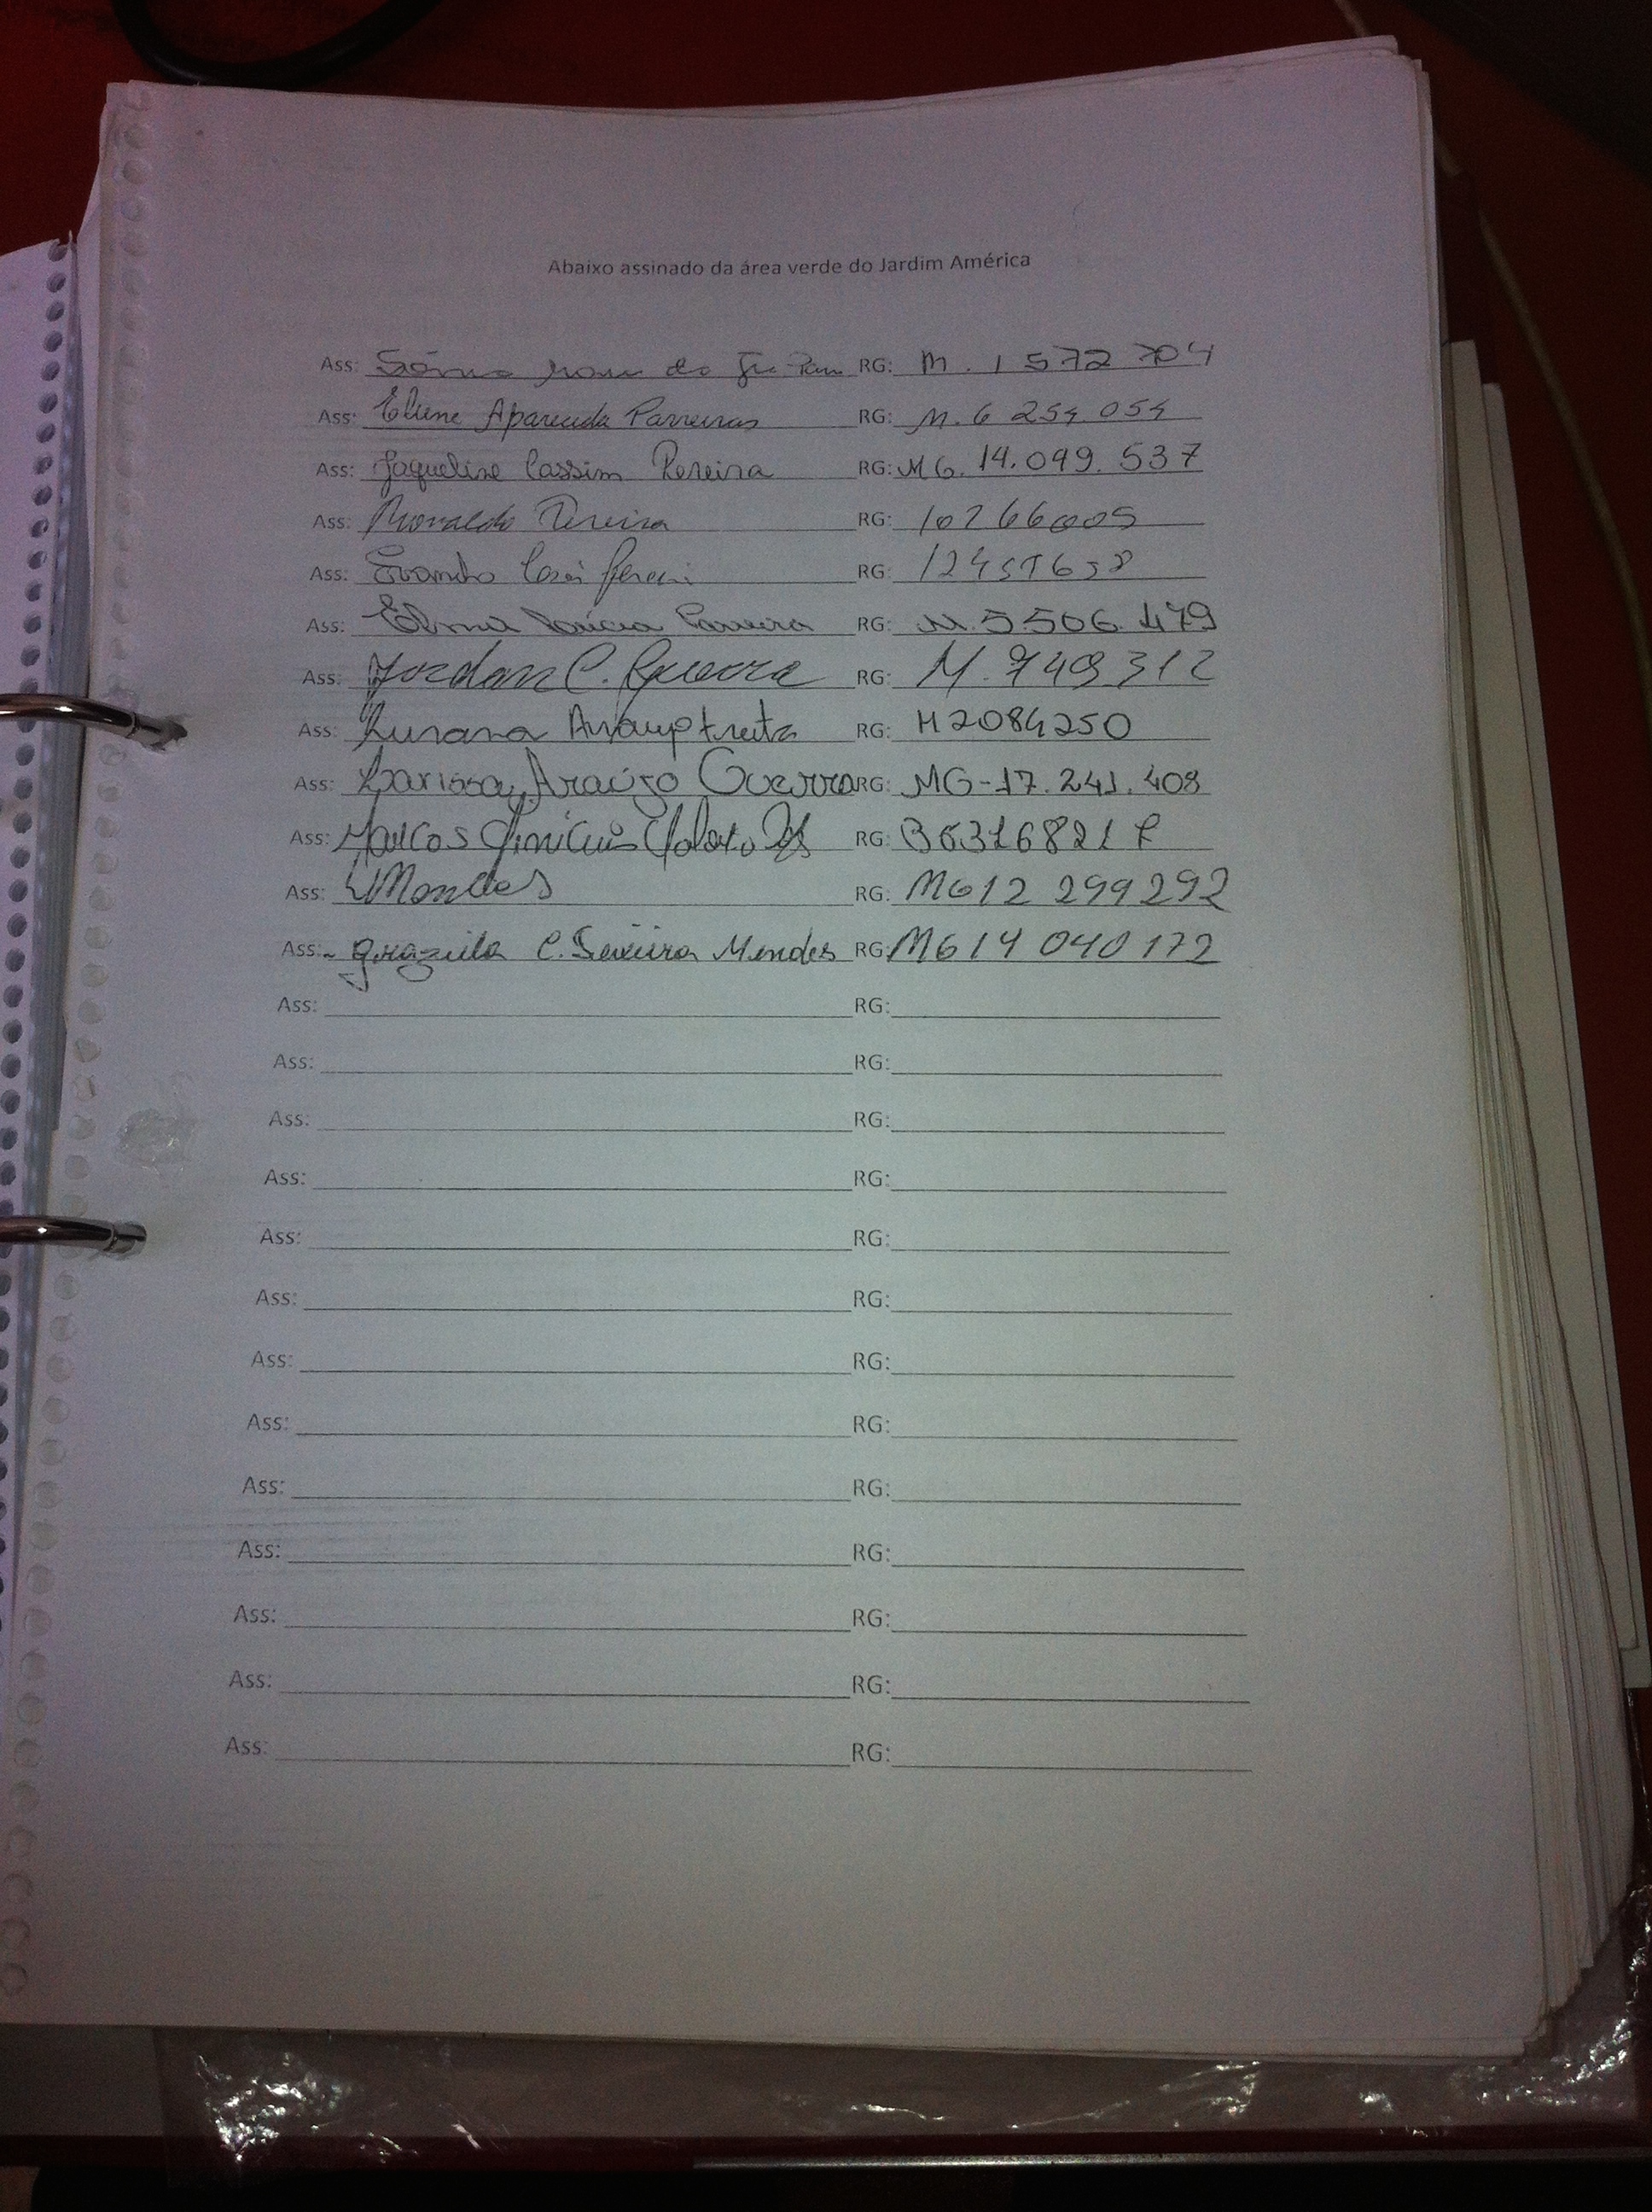 Abaixo assinado da área verde do Jardim América
Ass: RG: M. 1 572 704
Ass: Eliene Aparecida Parreiras RG: M. 6 254.054
Ass: Jaqueline Cassim Pereira RG: MG. 14.099.537
Ass: Ronaldo Pereira RG: 10266005
Ass: RG:
Ass: Parreira RG: M. 5.506.479
Ass: Jordan C. Guerra RG: M. 749312
Ass: Araujo RG: M2084250
Ass: Larissa Araújo Guerra RG: MG-17.241.408
Ass: Marcos RG:
Ass: Mendes RG: MG12 299292
Ass: C. Mendes RG: MG14 040 172
Ass: RG:
Ass: RG:
Ass: RG:
Ass: RG:
Ass: RG:
Ass: RG:
Ass: RG:
Ass: RG:
Ass: RG:
Ass: RG:
Ass: RG:
Ass: RG:
Ass: RG: